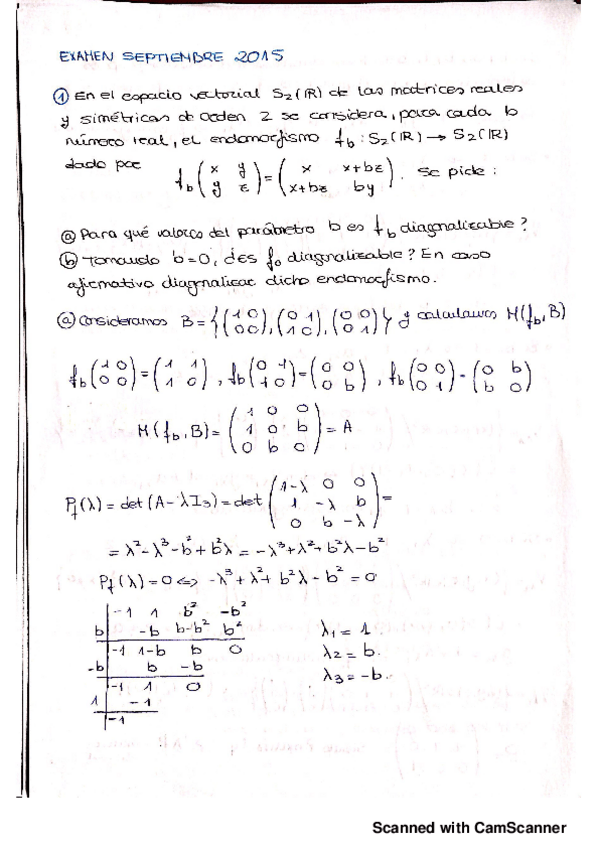 EXAMEN SEPTIEMBRE 2015
① En el espacio vectorial S₂(ℝ) de las matrices reales
y simétricas de orden 2 se considera, para cada b
número real, el endomorfismo f_b : S₂(ℝ) → S₂(ℝ)
dado por f_b (x y; y z) = (x x+bz; x+bz by). Se pide:
ⓐ Para qué valores del parámetro b es f_b diagonalizable?
ⓑ Tomando b=0, ¿es f₀ diagonalizable? En caso
afirmativo diagonalizar dicho endomorfismo.
ⓐ Consideramos B = {(1 0; 0 0), (0 1; 1 0), (0 0; 0 1)} y calculamos M(f_b, B)
f_b (1 0; 0 0) = (1 1; 1 0), f_b (0 1; 1 0) = (0 0; 0 b), f_b (0 0; 0 1) = (0 b; b 0)
M(f_b, B) = (1 0 0; 1 0 b; 0 b 0) = A
P_f(λ) = det(A-λI₃) = det (1-λ 0 0; 1 -λ b; 0 b -λ) =
= λ²-λ³-b²+b²λ = -λ³+λ²+b²λ-b²
P_f(λ) = 0 ⇔ -λ³+λ²+b²λ-b² = 0
-1 1 b² -b²
b -b b-b² b²
-1 1-b b 0
-b b -b
-1 1 0
1 -1
-1
λ₁ = 1.
λ₂ = b.
λ₃ = -b.
Scanned with CamScanner